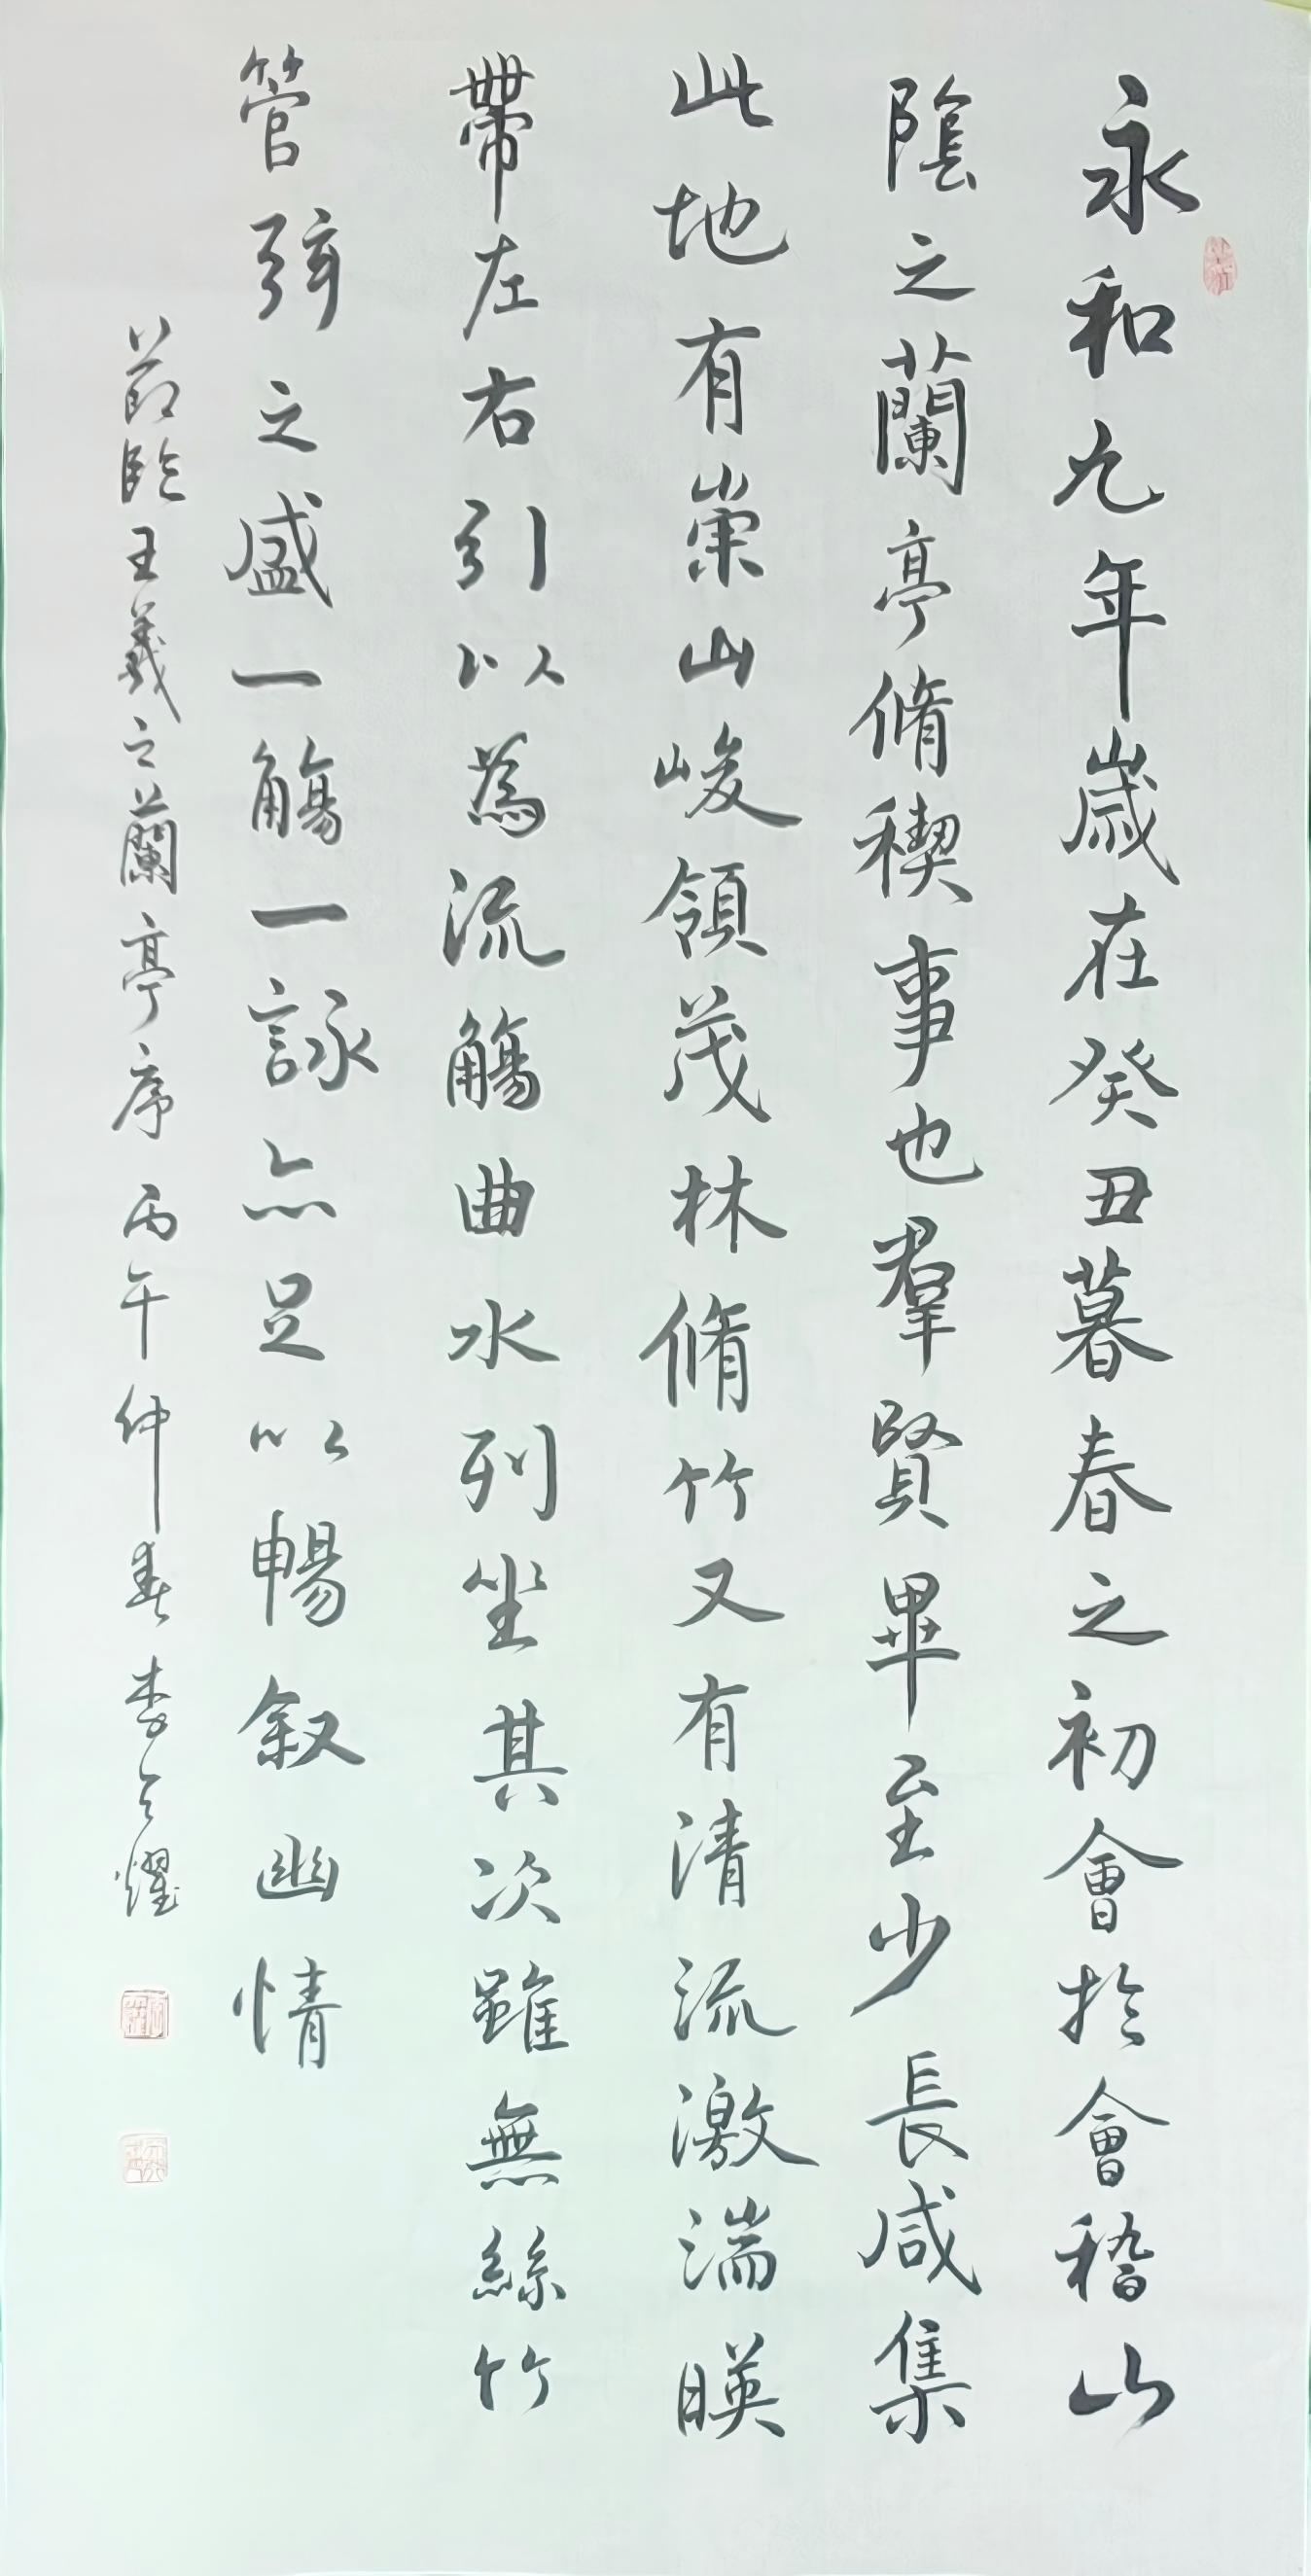 永和九年歲在癸丑暮春之初會於會稽山
陰之蘭亭脩稧事也羣賢畢至少長咸集
此地有崇山峻領茂林脩竹又有清流激湍暎
帶左右引以為流觴曲水列坐其次雖無絲竹
管弦之盛一觴一詠亦足以暢叙幽情
節臨王羲之蘭亭序丙午仲春李耀